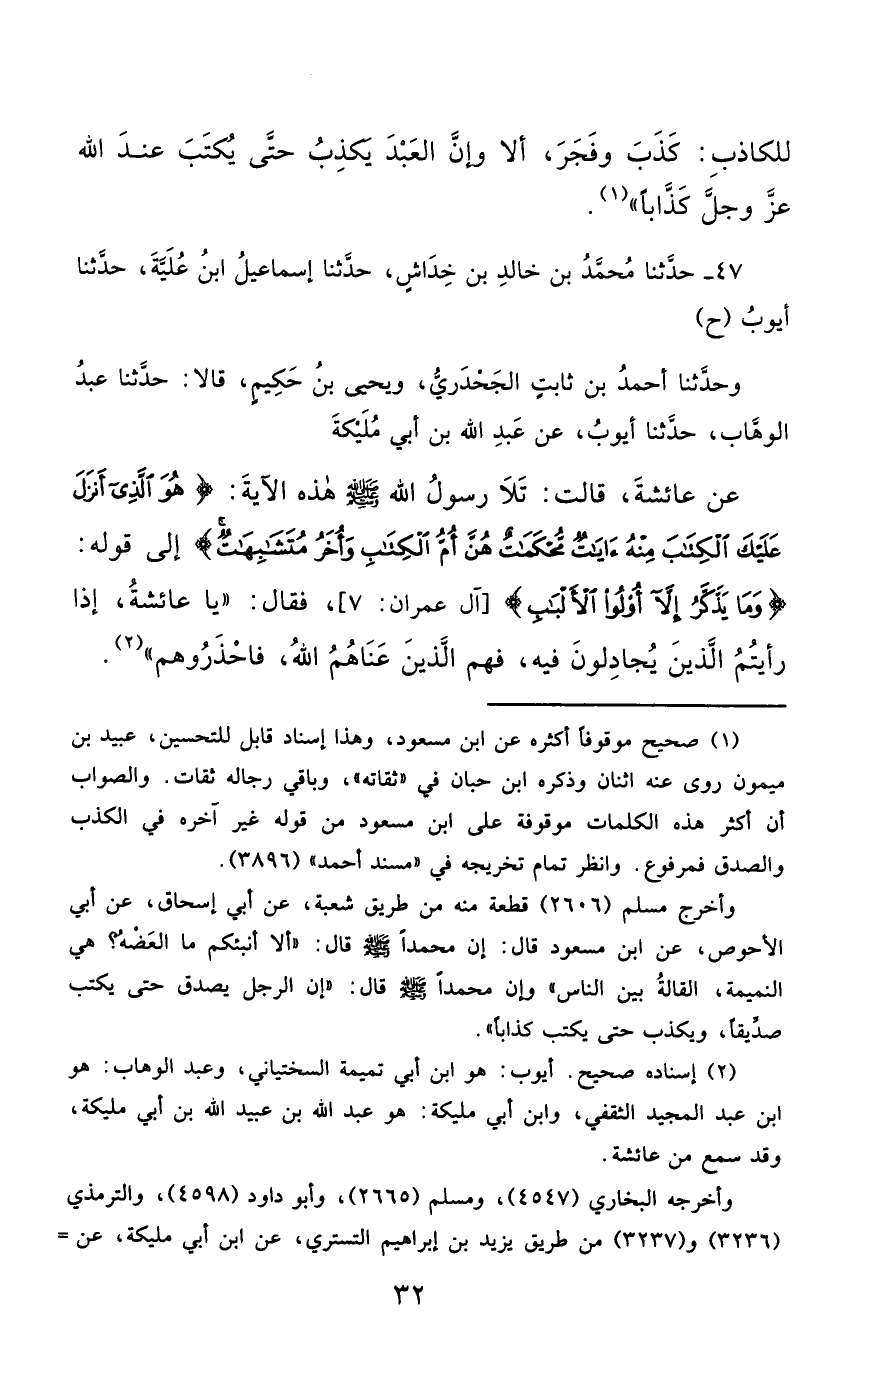 للكاذبِ: كَذَبَ وفَجَرَ، ألا وإنَّ العَبْدَ يَكذِبُ حتَّى يُكتَبَ عنـدَ الله
عزَّ وجلَّ كَذَّاباً»(١).
٤٧ـ حدَّثنا مُحمَّدُ بن خالدِ بن خِدَاشٍ، حدَّثنا إسماعيلُ ابنُ عُلَيَّةَ، حدَّثنا
أيوبُ (ح)
وحدَّثنا أحمدُ بن ثابتٍ الجَحْدَريُّ، ويحيى بنُ حَكِيمٍ، قالا: حدَّثنا عبدُ
الوهَّاب، حدَّثنا أيوبُ، عن عَبدِ الله بن أبي مُلَيْكةَ
عن عائشةَ، قالت: تَلَا رسولُ الله ﷺ هٰذه الآيةَ: ﴿هُوَ ٱلَّذِىٓ أَنزَلَ
عَلَيْكَ ٱلْكِتَٰبَ مِنْهُ ءَايَٰتٌ مُّحْكَمَٰتٌ هُنَّ أُمُّ ٱلْكِتَٰبِ وَأُخَرُ مُتَشَٰبِهَٰتٌ ۖ﴾ إلى قوله:
﴿وَمَا يَذَّكَّرُ إِلَّآ أُوْلُواْ ٱلْأَلْبَٰبِ﴾ [آل عمران: ٧]، فقال: «يا عائشةُ، إذا
رأيتُمُ الَّذينَ يُجادِلونَ فيه، فهم الَّذينَ عَنَاهُمُ اللهُ، فاحْذَرُوهم»(٢).
(١) صحيح موقوفاً أكثره عن ابن مسعود، وهذا إسناد قابل للتحسين، عبيد بن
ميمون روى عنه اثنان وذكره ابن حبان في «ثقاته»، وباقي رجاله ثقات. والصواب
أن أكثر هذه الكلمات موقوفة على ابن مسعود من قوله غير آخره في الكذب
والصدق فمرفوع. وانظر تمام تخريجه في «مسند أحمد» (٣٨٩٦).
وأخرج مسلم (٢٦٠٦) قطعة منه من طريق شعبة، عن أبي إسحاق، عن أبي
الأحوص، عن ابن مسعود قال: إن محمداً ﷺ قال: «ألا أنبئكم ما العَضْهُ؟ هي
النميمة، القالةُ بين الناس» وإن محمداً ﷺ قال: «إن الرجل يصدق حتى يكتب
صدِّيقاً، ويكذب حتى يكتب كذاباً».
(٢) إسناده صحيح. أيوب: هو ابن أبي تميمة السختياني، وعبد الوهاب: هو
ابن عبد المجيد الثقفي، وابن أبي مليكة: هو عبد الله بن عبيد الله بن أبي مليكة،
وقد سمع من عائشة.
وأخرجه البخاري (٤٥٤٧)، ومسلم (٢٦٦٥)، وأبو داود (٤٥٩٨)، والترمذي
(٣٢٣٦) و(٣٢٣٧) من طريق يزيد بن إبراهيم التستري، عن ابن أبي مليكة، عن =
٣٢